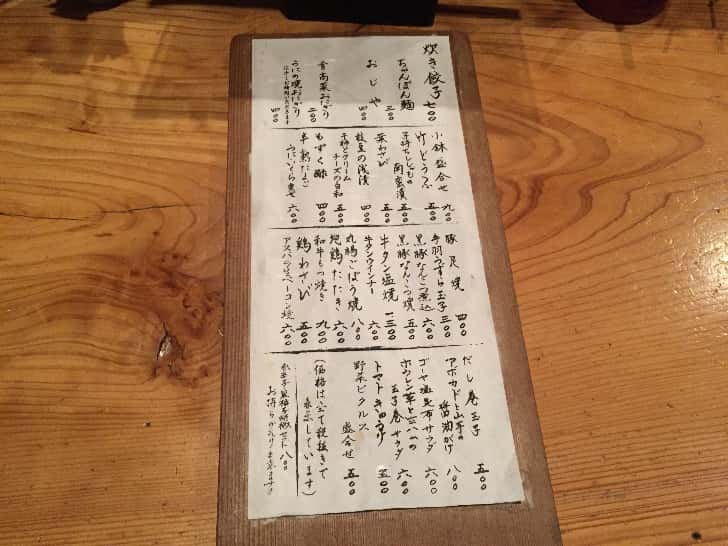 炊き餃子 七〇〇
ちゃんぽん麺 三〇〇
おじや 四〇〇
青高菜おにぎり 二〇〇
うにの焼おにぎり 四〇〇
小鉢盛合せ 九〇〇
竹どうふ 五〇〇
子持ちししゃもの南蛮漬 五〇〇
葉わさび 五〇〇
枝豆の浅漬 四〇〇
干柿とクリームチーズの白和 五〇〇
もずく酢 四〇〇
半熟たまご
うにいくら乗せ 六〇〇
豚足焼 四〇〇
手羽うずら玉子 三〇〇
黒豚なんこつ煮込 六〇〇
黒豚なんこつ焼 五〇〇
牛タン塩焼 一三〇〇
牛タンウインナー 六〇〇
丸腸ごぼう焼 八〇〇
地鶏たたき 六〇〇
和牛もつ焼き 九〇〇
鶏わさび 五〇〇
アスパラガスベーコン焼 六〇〇
だし巻玉子 五〇〇
アボカドと山芋の
醤油がけ 八〇〇
ゴーヤ塩昆布サラダ 六〇〇
ホウレン草と
玉子巻サラダ 六〇〇
トマトきゅうり 五〇〇
野菜ピクルス
盛合せ 五〇〇
(価格は全て税抜きで
表示しています)
お持ちかえり出来ます